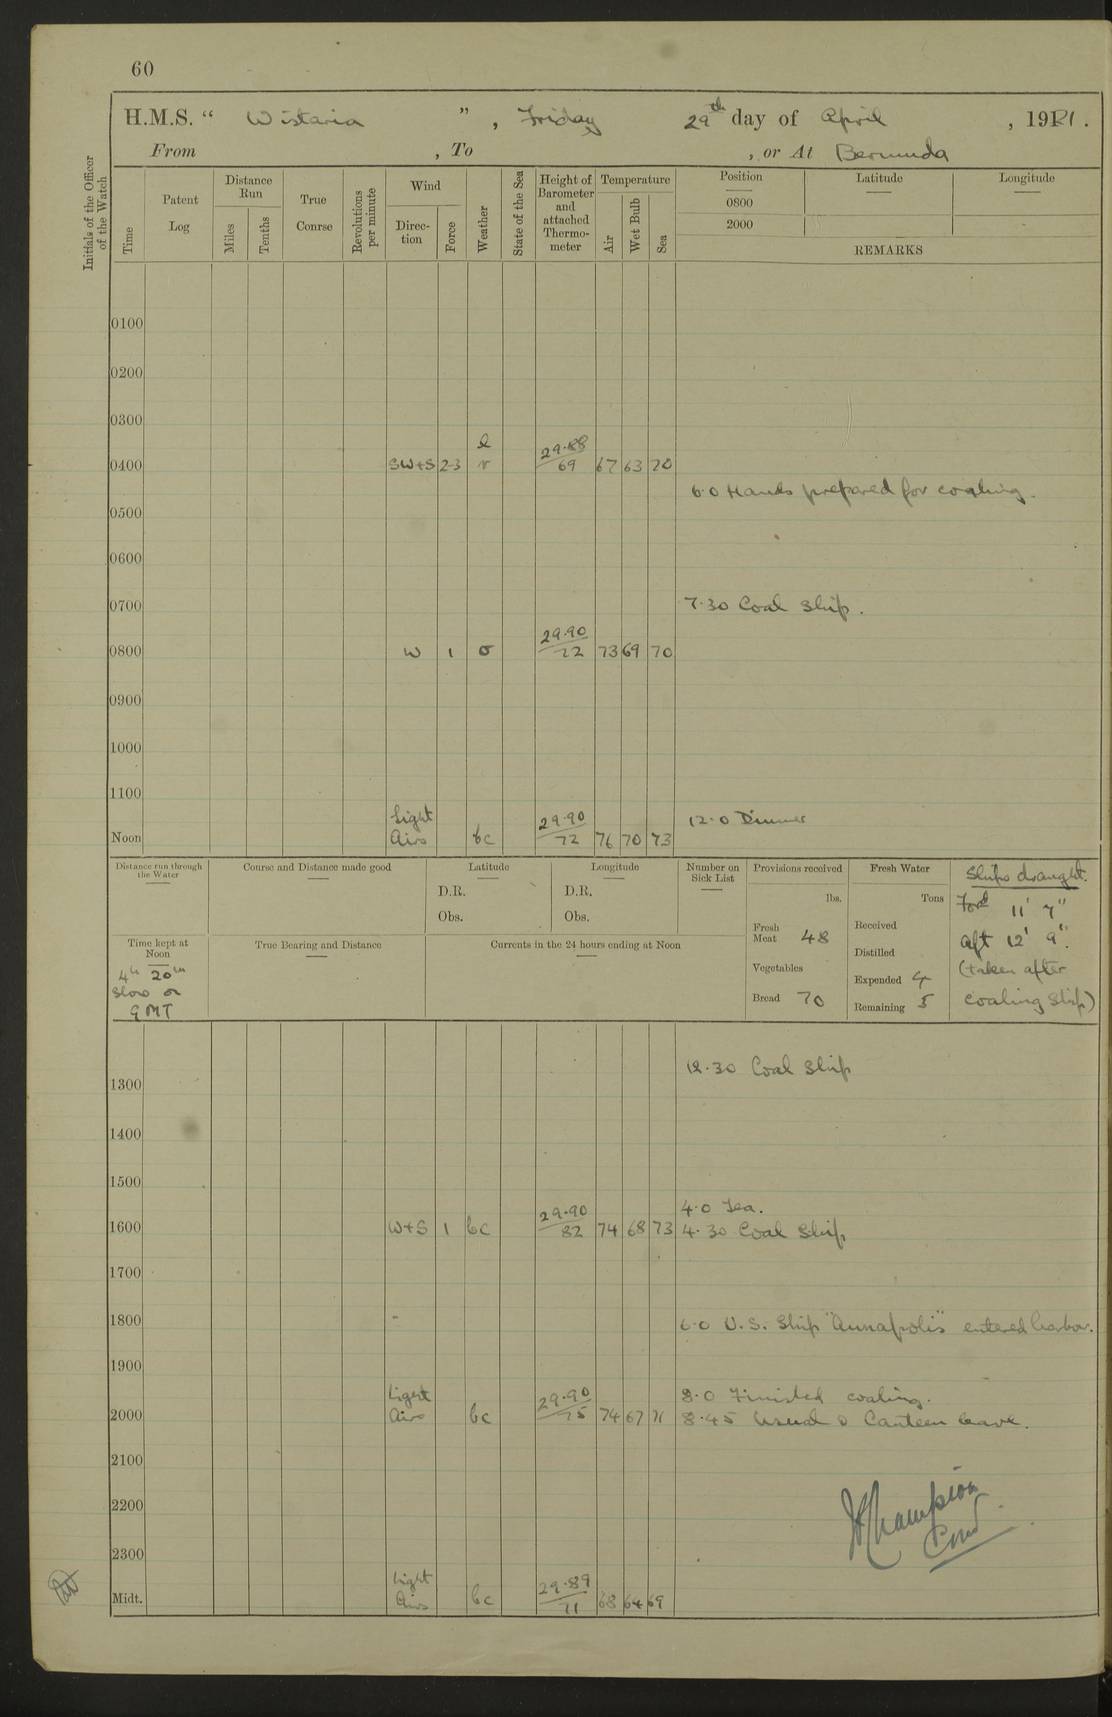 60
H.M.S. “ Wistaria ” , Friday 29th day of April , 1921.
From , To , or At Bermuda
Initials of the Officer of the Watch
Time
Patent Log
Distance Run
Miles
Tenths
True Course
Revolutions per minute
Wind
Direction
Force
Weather
State of the Sea
Height of Barometer and attached Thermometer
Temperature
Air
Wet Bulb
Sea
Position
Latitude
Longitude
0800
2000
REMARKS
0100
0200
0300
0400 SW+S 2-3 29.88/69 67 63 70
6.0 Hands prepared for coaling.
0500
0600
0700 7.30 Coal Ship.
0800 W 1 o 29.90/72 73 69 70
0900
1000
1100
Noon Light Airs bc 29.90/72 76 70 73 12.0 Dinner
Distance run through the Water
Course and Distance made good
Latitude
D.R.
Obs.
Longitude
D.R.
Obs.
Number on Sick List
Provisions received
lbs.
Fresh Meat 48
Vegetables
Bread 70
Fresh Water
Tons
Received
Distilled
Expended 4
Remaining 5
Ships draught.
Ford 11' 7"
aft 12' 9".
(taken after
coaling Ship)
Time kept at Noon
4h 20m
slow on
GMT
True Bearing and Distance
Currents in the 24 hours ending at Noon
12.30 Coal Ship
1300
1400
1500
4.0 Tea.
1600 W+S 1 bc 29.90/82 74 68 73 4.30 Coal Ship
1700
1800 6.0 U.S. Ship "Annapolis" entered harbor.
1900
8.0 Finished coaling.
2000 Light Airs bc 29.90/75 74 67 71 8.45 Usual & Canteen leave.
2100
2200
2300
Champion
Midt. Light Airs bc 29.89/71 68 64 69